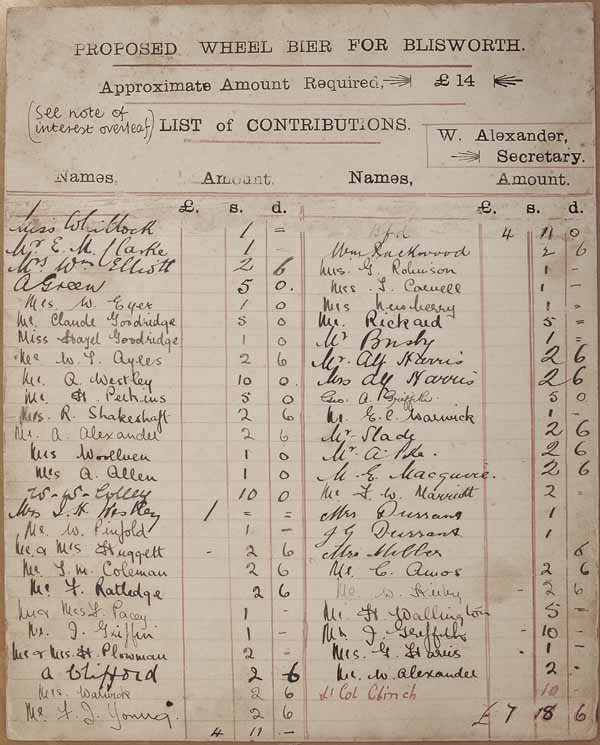 PROPOSED WHEEL BIER FOR BLISWORTH.
Approximate Amount Required, £14
(See note of interest overleaf)
LIST of CONTRIBUTIONS.
W. Alexander, Secretary.
Names, Amount. Names, Amount.
£. s. d. £. s. d.
Miss Whitlock 1 =
Mr E. M. Clarke 1 -
Mrs Wm Elliott 2 6
A Green 5 0.
Mrs W. Eyer 1 0
Mr. Claude Goodridge 5 0
Miss Hazel Goodridge 1 0
Mr W. T. Ayles 2 6
Mr. A. Westley 10 0
Mr H. Perkins 5 0
Mrs. R. Shakeshaft 2 6
Mr. A. Alexander 2 6
Mrs Woollven 1 0
Mrs A. Allen 1 0
Colley 10 0
Mrs Westley 1 = =
Mr. W. Pinfold 1 -
Mr. & Mrs Huggett - 2 6
Mr T. M. Coleman 2 6
Mr F. Ratledge 2 6
Mr & Mrs F. Pacey 1 -
Mr. J. Griffin 1 -
Mr & Mrs. H. Plowman 2 -
A Clifford 2 6
Mrs. Warwick 2 6
Mr. F. J. Young. 2 6
4 11 -
Bfd 4 11 0
Wm Rackwood 2 6
Mrs. G. Robinson 1 -
Miss 1 -
Mrs Newberry 1 =
Mr. Rickard 5 =
Mr Busby 1 =
Mr. Alf Harris 2 6
Mrs Alf Harris 2 6
Geo. A. Griffiths. 5 0
Mr. E. C. Warwick 1 -
Mr. Slade 2 6
Mr. A. 2 6
M. E. Macquire. 2 6
Mr F. W. Marriott 2 =
Mrs Durrant 1
J G Durrant 1
Mrs. Miller 6
Mr. C. Amos 2 6
- 2 6
Mr. H. Wallington 5 -
Mr. J. Griffiths - 10 -
Mrs. G. Harris - 1 -
Mr. W. Alexander 2 -
Lt Col Clinch 10 -
£ 7 18 6